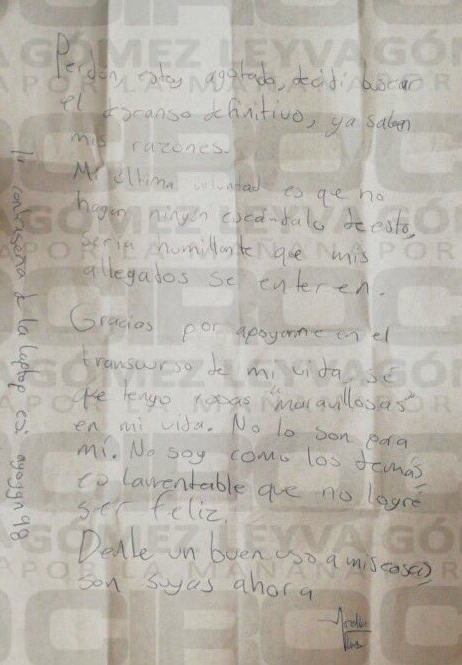 Perdon, estoy agotado, decidi buscar
el descanso definitivo, ya saben
mis razones.
Mi ultima voluntad es que no
hagan ningun escandalo de esto,
seria humillante que mis
allegados se enteren.
Gracias por apoyarme en el
transcurso de mi vida, sé
que tengo cosas "maravillosas"
en mi vida. No lo son para
mí. No soy como los demás,
es lamentable que no logré
ser feliz.
Denle un buen uso a mis cosas,
son suyas ahora
la contraseña d la laptop es:
GÓMEZ LEYVA
CIRO
POR LA MAÑANA